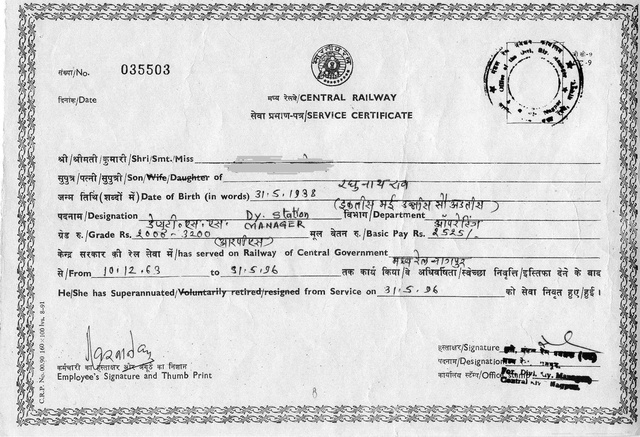 संख्या/No. 035503
दिनांक/Date
मध्य रेलवे/CENTRAL RAILWAY
सेवा प्रमाण-पत्र/SERVICE CERTIFICATE
श्री/श्रीमती/कुमारी/Shri/Smt./Miss
सुपुत्र/पत्नी/सुपुत्री/Son/Wife/Daughter of रघुनाथ राव
जन्म तिथि (शब्दों में) Date of Birth (in words) 31.5.1938 (इकतीस मई उन्नीस सौ अडतीस)
पदनाम/Designation डेप्युटी. एस. एस. Dy. Station MANAGER विभाग/Department ऑपरेटिंग
ग्रेड रु./Grade Rs. 2000-3200 (आरपीएस) मूल वेतन रु./Basic Pay Rs. 2525/-
केन्द्र सरकार की रेल सेवा में/has served on Railway of Central Government मध्य रेल नागपुर
से/From 10.12.63 to 31.5.96 तक कार्य किया/वे अधिवर्षिता/स्वेच्छा निवृत्ति/इस्तिफा देने के बाद
He/She has Superannuated/Voluntarily retired/resigned from Service on 31.5.96 को सेवा निवृत हुए/हुई।
हस्ताक्षर/Signature
कर्मचारी का हस्ताक्षर और अंगूठे का निशान
Employee's Signature and Thumb Print
पदनाम/Designation
कार्यालय स्टैंप/Office stamp
For Divl. Manager
Central Nagpur
8